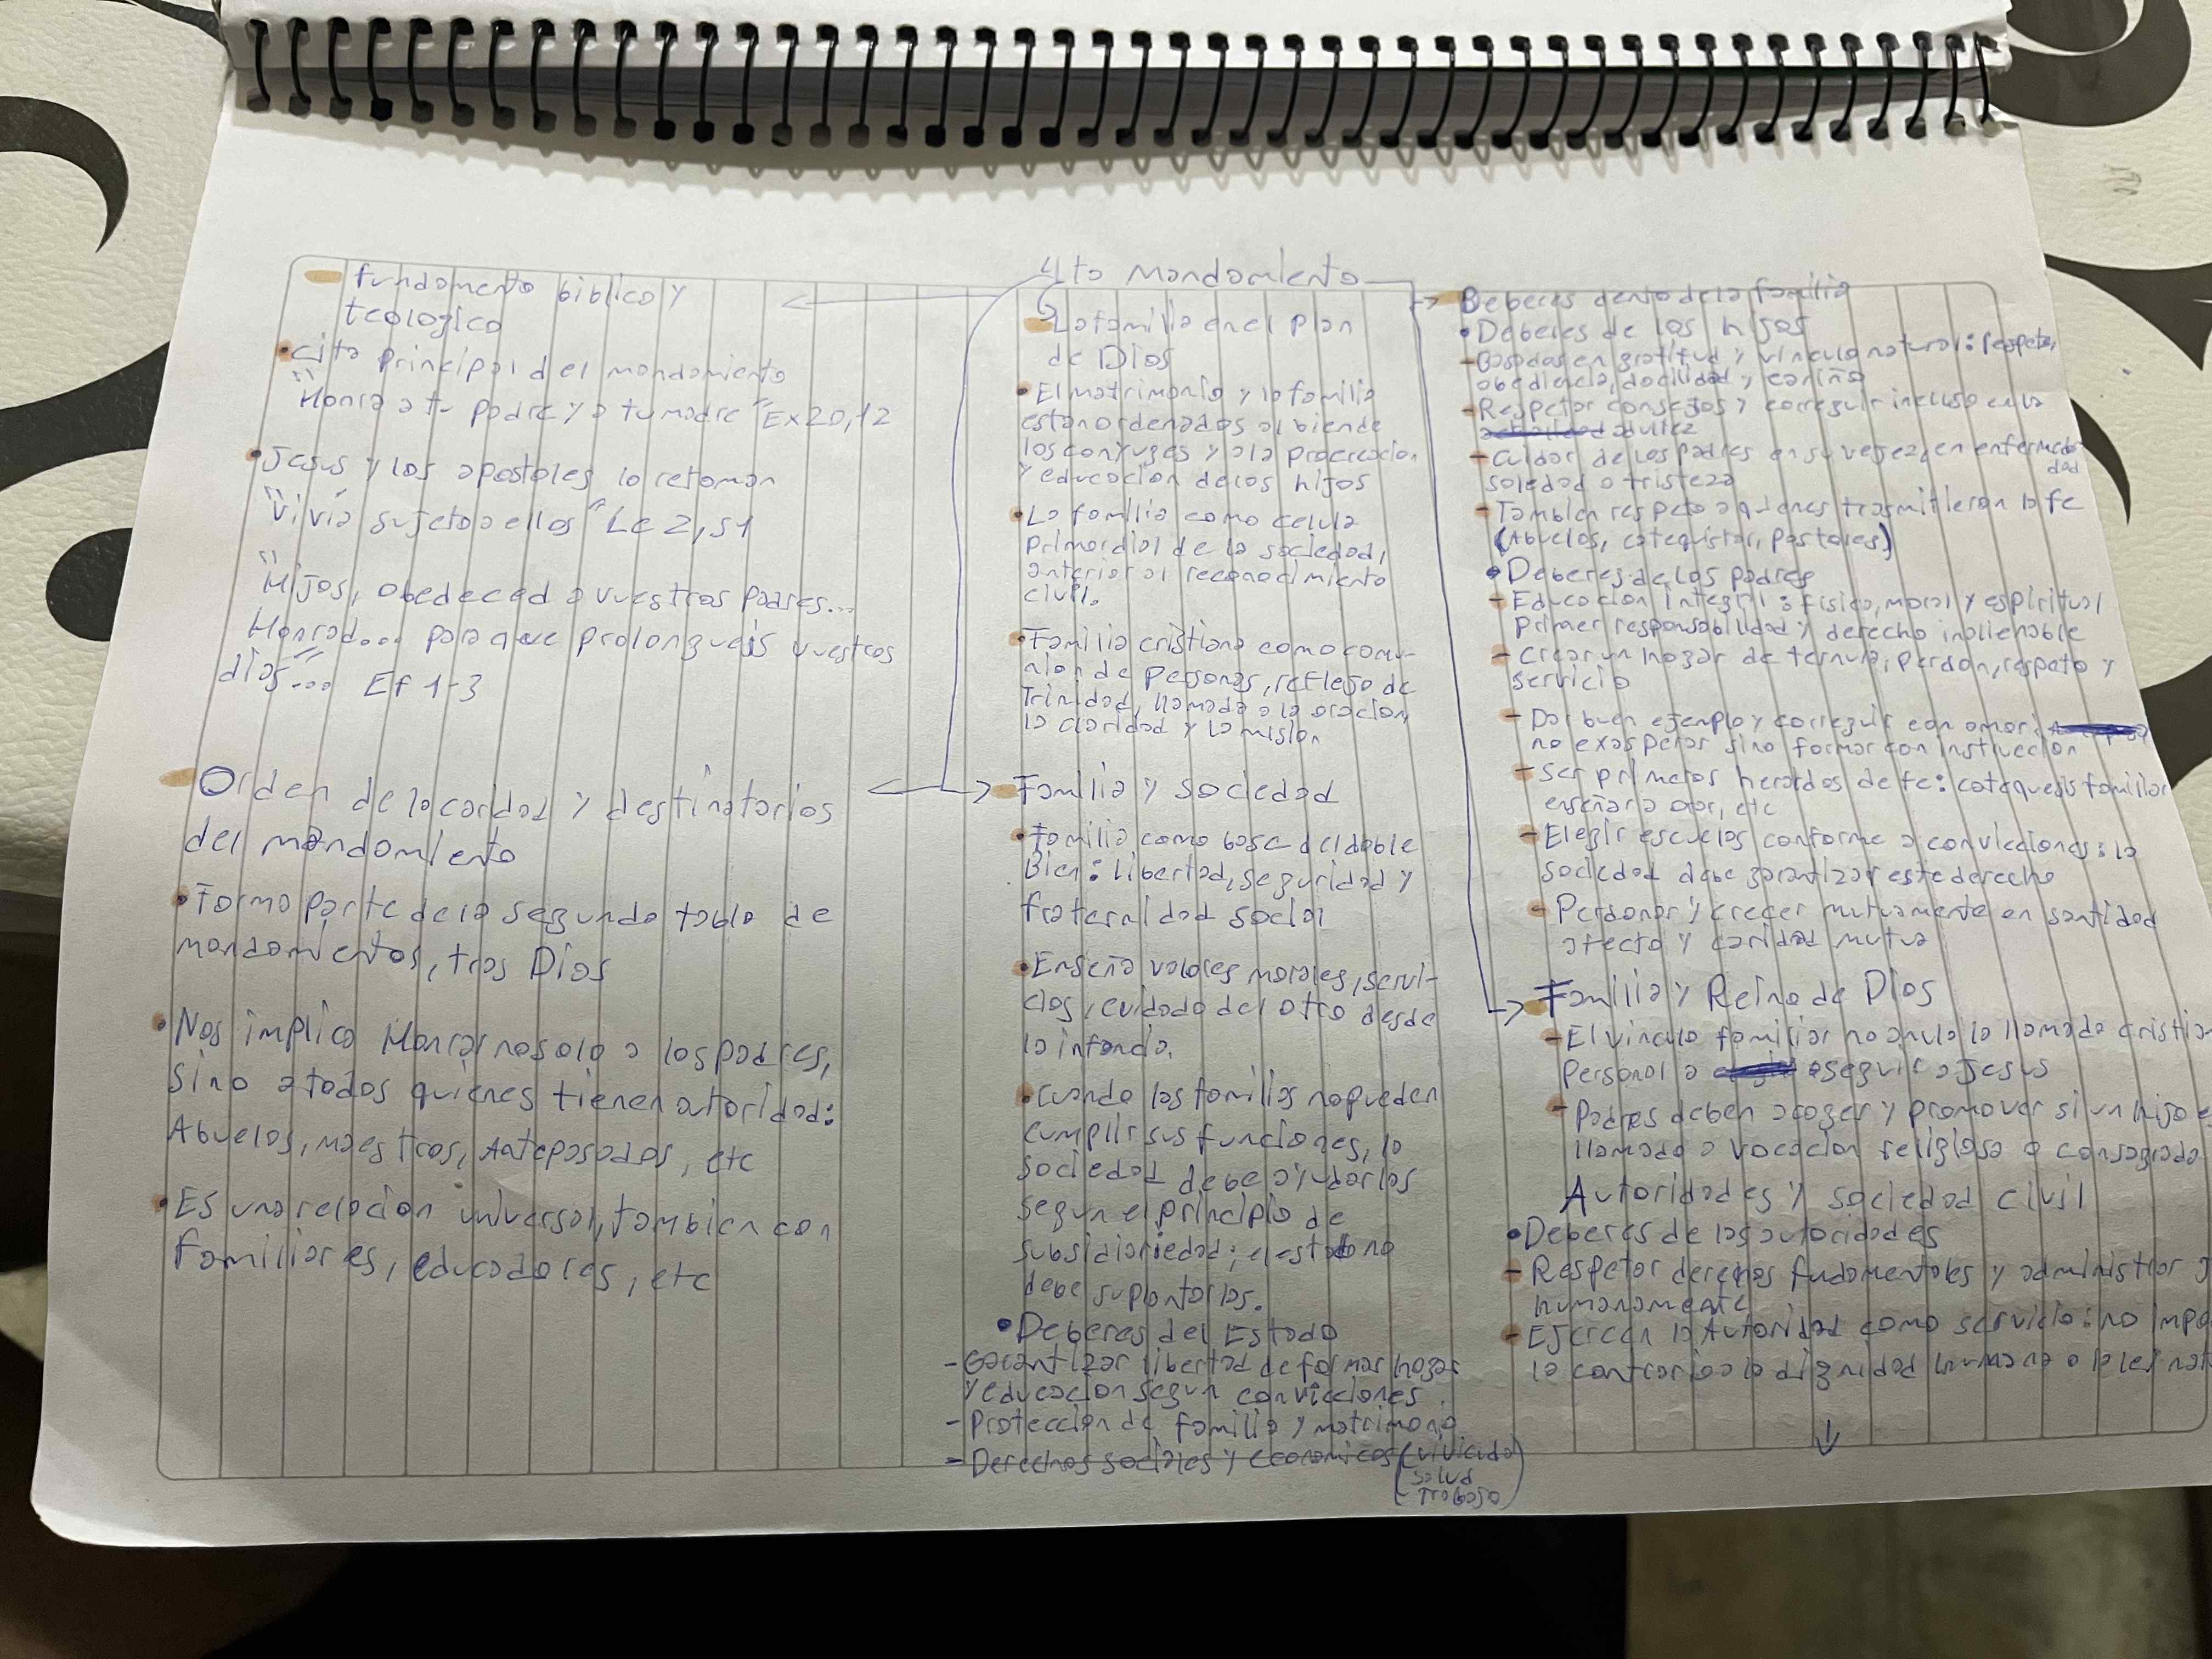 4to Mandamiento
fundamento biblico y
teologico
•Cita principal del mandamiento
"Honra a tu padre y a tu madre" Ex 20,12
•Jesus y los apostoles lo retoman
"Vivia sujeto a ellos" Lc 2,51
"Hijos, obedeced a vuestros padres...
Honrad... para que prolongueis vuestros
dias"... Ef 1-3
Orden de la caridad y destinatarios
del mandamiento
•Forma parte de la segunda tabla de
mandamientos, tras Dios
•Nos implica Honrar no solo a los padres,
sino a todos quienes tienen autoridad:
Abuelos, maestros, Antepasados, etc
•Es una relacion universal, tambien con
familiares, educadores, etc
La familia en el plan
de Dios
•El matrimonio y la familia
estan ordenados al bien de
los conyuges y a la procreacion
y educacion de los hijos
•La familia como celula
primordial de la sociedad,
anterior al reconocimiento
civil.
•Familia cristiana como comu-
nion de personas, reflejo de
Trinidad, llamada a la oracion,
la claridad y la mision
Familia y sociedad
•Familia como base del doble
Bien: libertad, seguridad y
fraternidad social
•Enseña valores morales, servi-
cios, cuidado del otro desde
la infancia.
•Cuando las familias no pueden
cumplir sus funciones, la
sociedad debe ayudarlas
segun el principio de
subsidiariedad; el estado no
debe suplantarlas.
•Deberes del Estado
-Garantizar libertad de formar hogar
y educacion segun convicciones.
-Proteccion de familia y matrimonio
-Derechos sociales y economicos (vivienda
salud
trabajo)
Deberes dento de la familia
•Deberes de los hijos
-Basadas en gratitud y vinculo natural: respeto,
obediencia, docilidad y cariño
-Respetar consejos y corregir incluso en la
adultez
-Cuidar de los padres en su vejez, en enfermedad
soledad o tristeza
-Tambien respeto a quienes trasmitieron la fe
(Abuelos, catequistas, pastores)
•Deberes de los padres
-Educacion integral: fisica, moral y espiritual
primer responsabilidad y derecho inalienable
-Crear un hogar de ternura, perdon, respeto y
servicio
-Dar buen ejemplo y corregir con amor:
no exasperar sino formar con instruccion
-Ser primeros heraldos de fe: catequesis familiar
enseñar a orar, etc
-Elegir escuelas conforme a convicciones: la
sociedad debe garantizar este derecho
-Perdonar y crecer mutuamente en santidad
afecto y caridad mutua
Familia y Reino de Dios
-El vinculo familiar no anula la llamada cristia
personal a seguir a Jesus
-Padres deben acoger y promover si un hijo e
llamado a vocacion religiosa o consagrada
Autoridades y sociedad civil
•Deberes de las autoridades
-Respetar derechos fudamentales y administrar J
humanamente
-Ejercen la Autoridad como servicio: no impo
lo contrario a la dignidad humana o la ley nat